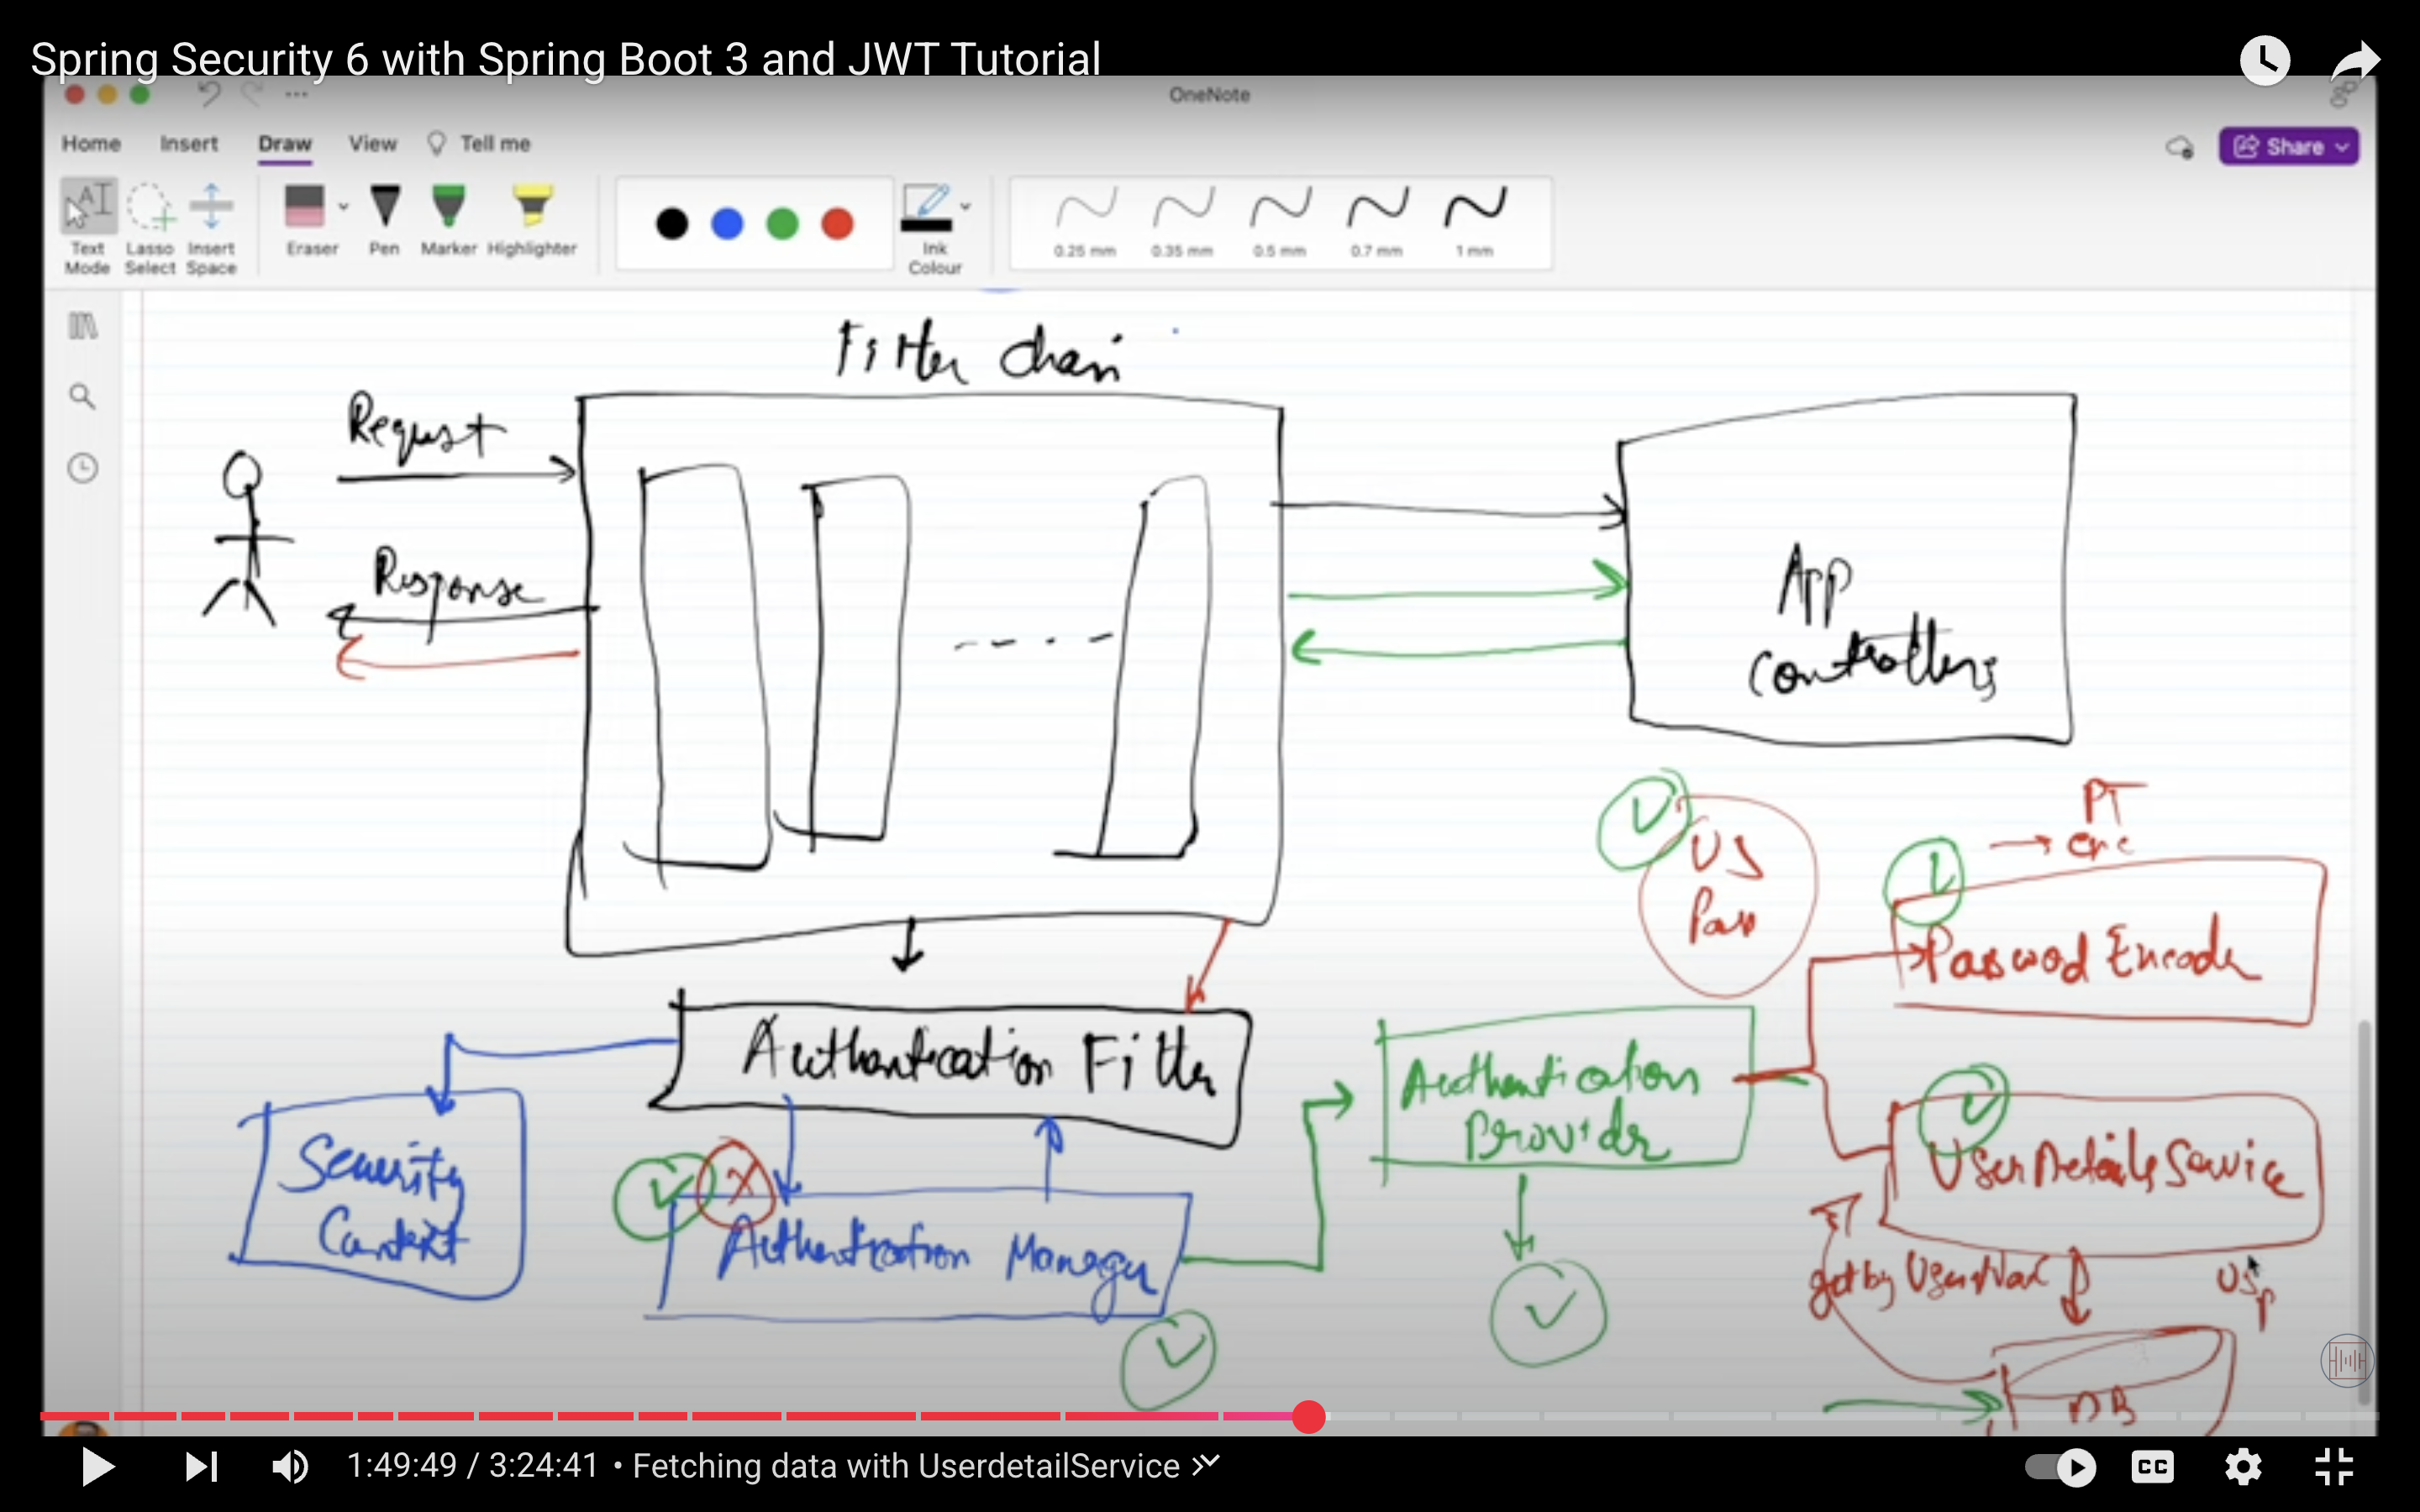 Spring Security 6 with Spring Boot 3 and JWT Tutorial
OneNote
Home Insert Draw View Tell me
Share
Text Mode
Lasso Select
Insert Space
Eraser
Pen
Marker
Highlighter
Ink Colour
0.25 mm
0.35 mm
0.5 mm
0.7 mm
1 mm
Filter Chain
Request
Response
App
Controllers
PT
enc
US
Pass
Password Encoder
Authentication Filter
Authentication
Provider
Security
Context
UserDetailsService
Authentication Manager
get by UserName
US
P
DB
1:49:49 / 3:24:41 • Fetching data with UserdetailService
CC